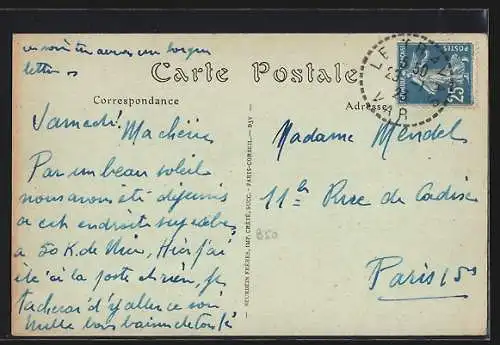 Carte Postale
Correspondance
Adresse
Samedi. Ma chérie
Par un beau soleil
nous avons été déjeuner
à cet endroit superbe,
à 50 K. de Nice, Hier j'ai
été à la poste et rien, je
tacherai d'y aller ce soir
Mille bons baisers de tous
lettre
Madame Mendel
11 bis Rue de Cadix
Paris 15e
850
NEURDEIN FRÈRES, IMP. CRÉTÉ, SUCC. - PARIS-CORBEIL
LE TRAYAS
VAR
POSTES
25